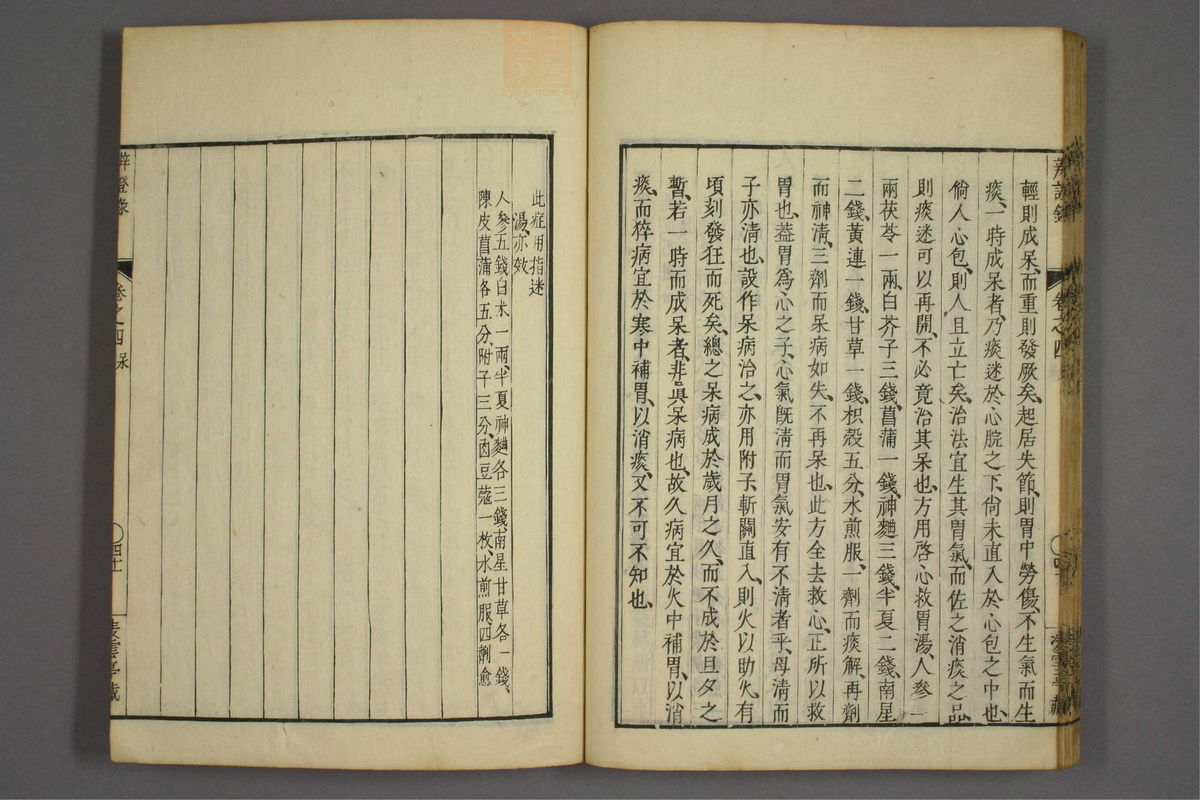 輕則成呆、而重則發厥矣、起居失節、則胃中勞傷、不生氣而生
痰、一時成呆者、乃痰迷於心脘之下、尙未直入於心包之中也、
倘人心包、則人且立亡矣、治法宜生其胃氣、而佐之消痰之品、
則痰迷可以再開、不必竟治其呆也、方用啓心救胃湯、人參一
兩茯苓一兩、白芥子三錢、菖蒲一錢、神麯三錢、半夏二錢、南星
二錢、黃連一錢、甘草一錢、枳殻五分、水煎服、一劑而痰解、再劑
而神淸、三劑而呆病如失、不再呆也、此方全去救心、正所以救
胃也、蓋胃爲心之子、心氣旣淸而胃氣安有不淸者乎、母淸而
子亦淸也、設作呆病治之、亦用附子、斬關直入、則火以助火、有
頃刻發狂而死矣、總之呆病成於歲月之久、而不成於旦夕之
暫、若一時而成呆者、非眞呆病也、故久病宜於火中補胃、以消
痰、而猝病宜於寒中補胃、以消痰、又不可不知也、
辨證錄
卷之四
此症用指迷
湯、亦效
人參五錢白朮一兩、半夏神麯各三錢、南星甘草各一錢、
陳皮菖蒲各五分、附子三分、肉豆蔻一枚、水煎服、四劑愈
辨證錄 卷之四 呆 四十